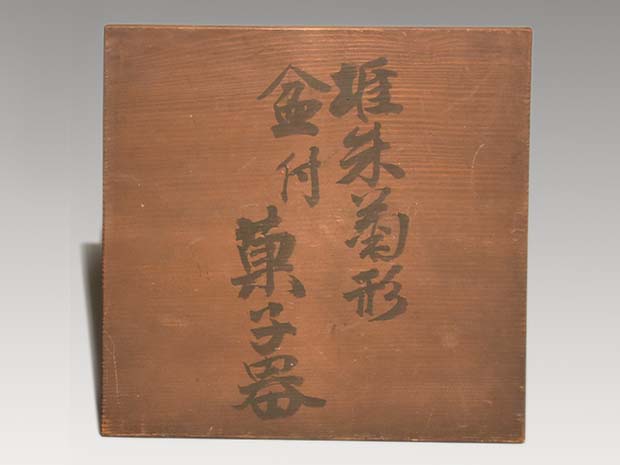 堆朱菊形
盆付
菓子器